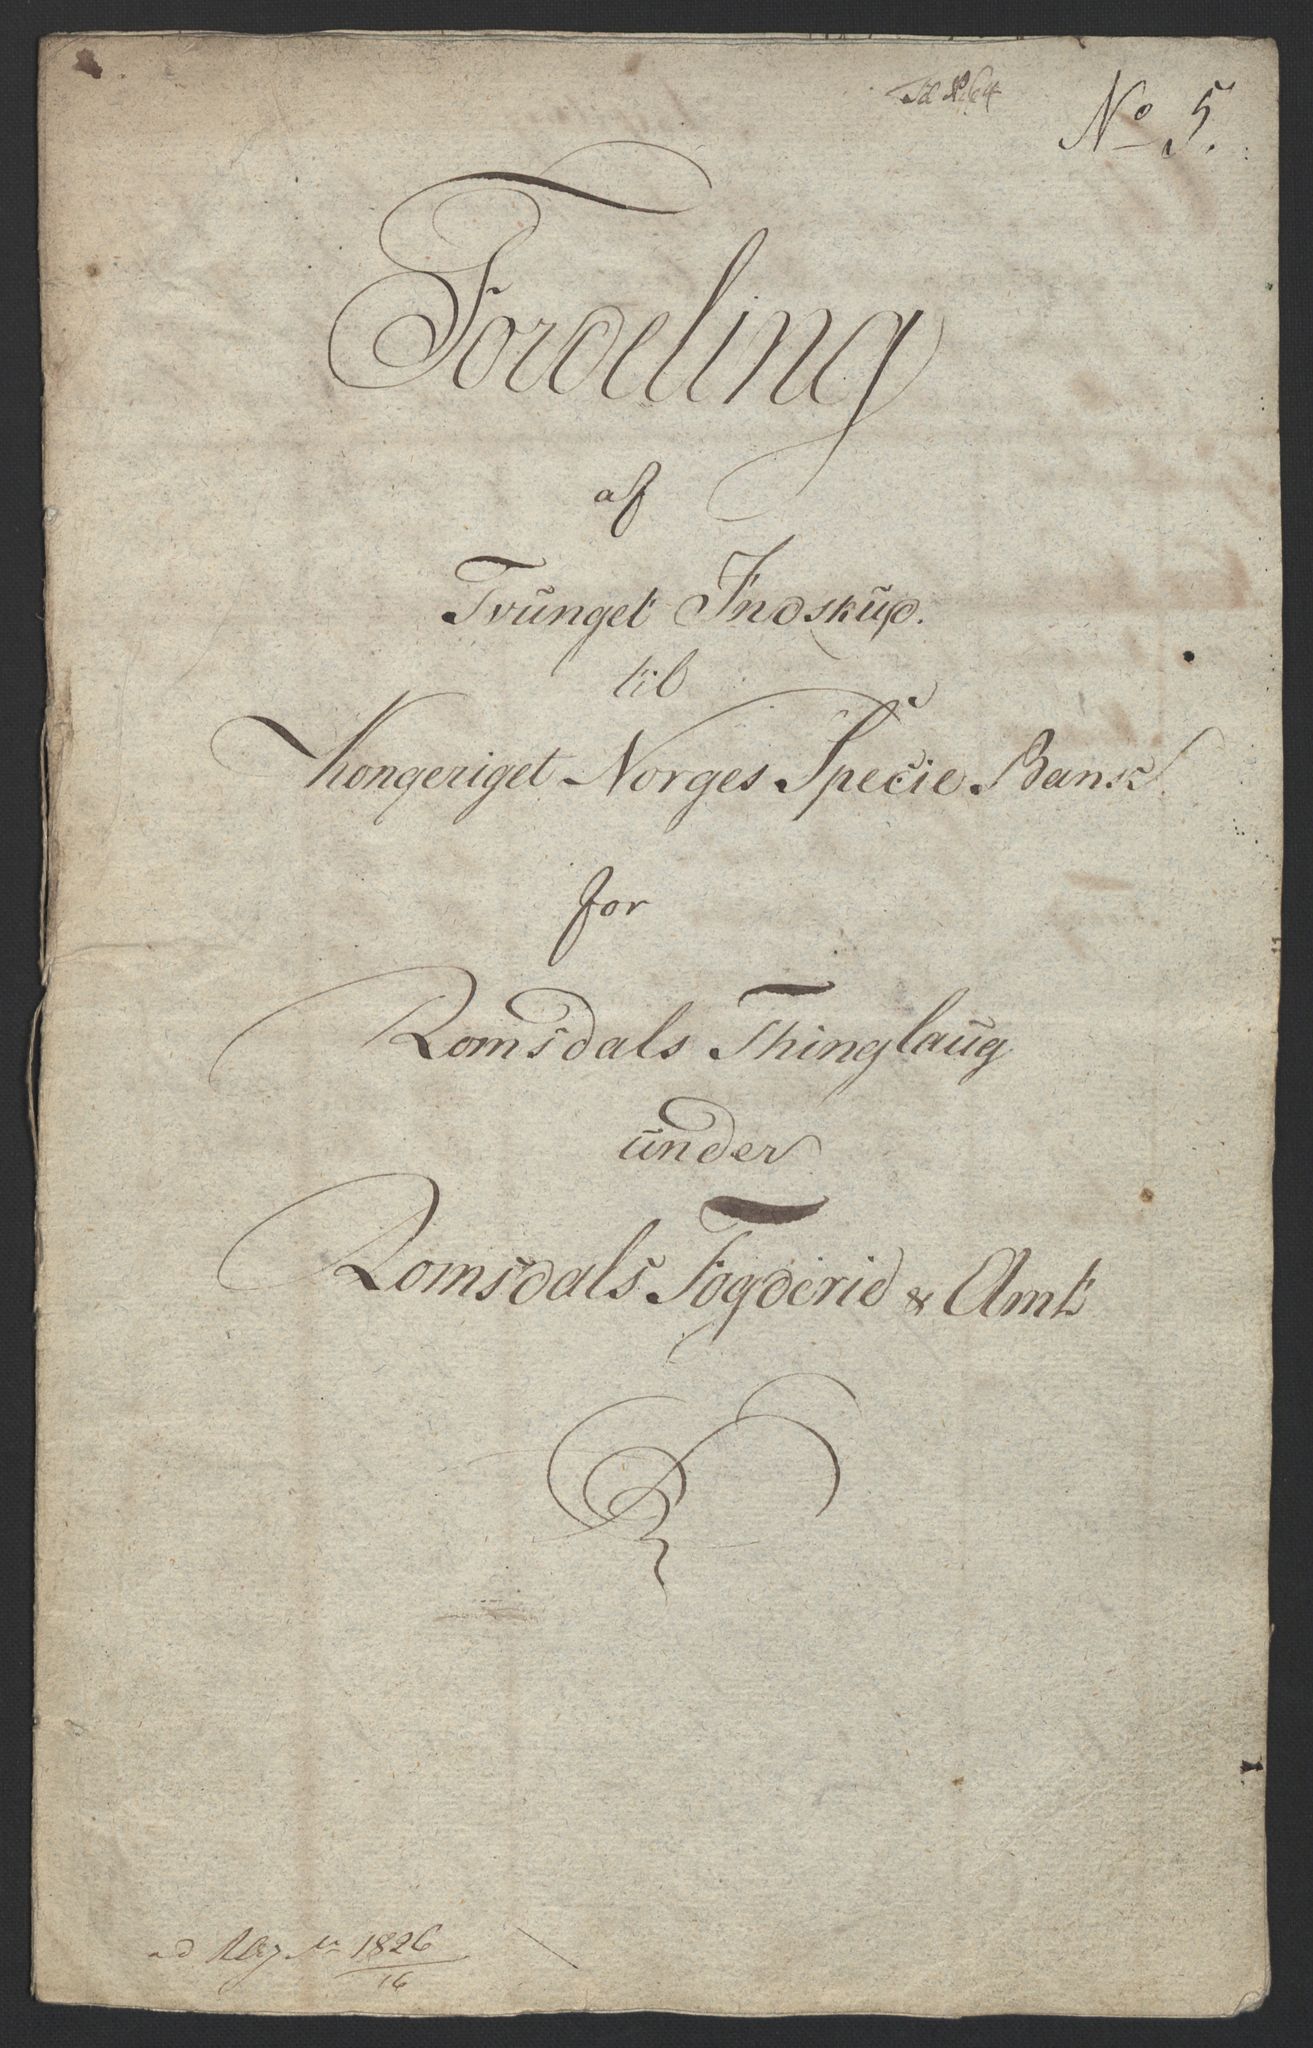 No 5.
Fordeling
af
Tvünget Indskud.
til
Kongeriget Norges Specie Bank
for
Romsdals Thinglaüg
ünder
Romsdals Fogderie & Amt
ad No 1826
16